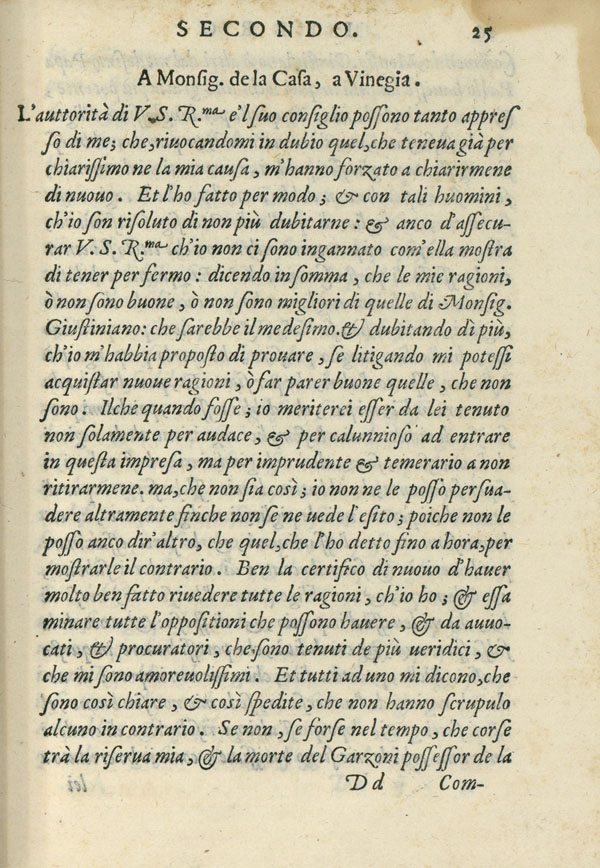 SECONDO. 25
A Monsig. de la Casa, a Vinegia.
L'auttorità di V. S. R.ma e'l suo consiglio possono tanto appres
so di me; che, riuocandomi in dubio quel, che teneua già per
chiarissimo ne la mia causa, m'hanno forzato a chiarirmene
di nuouo. Et l'ho fatto per modo; & con tali huomini,
ch'io son risoluto di non più dubitarne: & anco d'assecu-
rar V. S. R.ma ch'io non ci sono ingannato com'ella mostra
di tener per fermo: dicendo in somma, che le mie ragioni,
ò non sono buone, ò non sono migliori di quelle di Monsig.
Giustiniano: che sarebbe il medesimo. & dubitando di più,
ch'io m'habbia proposto di prouare, se litigando mi potessi
acquistar nuoue ragioni, ò far parer buone quelle, che non
sono. Ilche quando fosse; io meriterei esser da lei tenuto
non solamente per audace, & per calunnioso ad entrare
in questa impresa, ma per imprudente & temerario a non
ritirarmene. ma, che non sia così; io non ne le posso persua-
dere altramente finche non se ne uede l'esito; poiche non le
posso anco dir'altro, che quel, che l'ho detto fino a hora, per
mostrarle il contrario. Ben la certifico di nuouo d'hauer
molto ben fatto riuedere tutte le ragioni, ch'io ho; & essa
minare tutte l'oppositioni che possono hauere, & da auuo-
cati, & procuratori, che sono tenuti de più ueridici, &
che mi sono amoreuolissimi. Et tutti ad uno mi dicono, che
sono così chiare, & così spedite, che non hanno scrupulo
alcuno in contrario. Se non, se forse nel tempo, che corse
trà la riserua mia, & la morte del Garzoni possessor de la
D d Com-